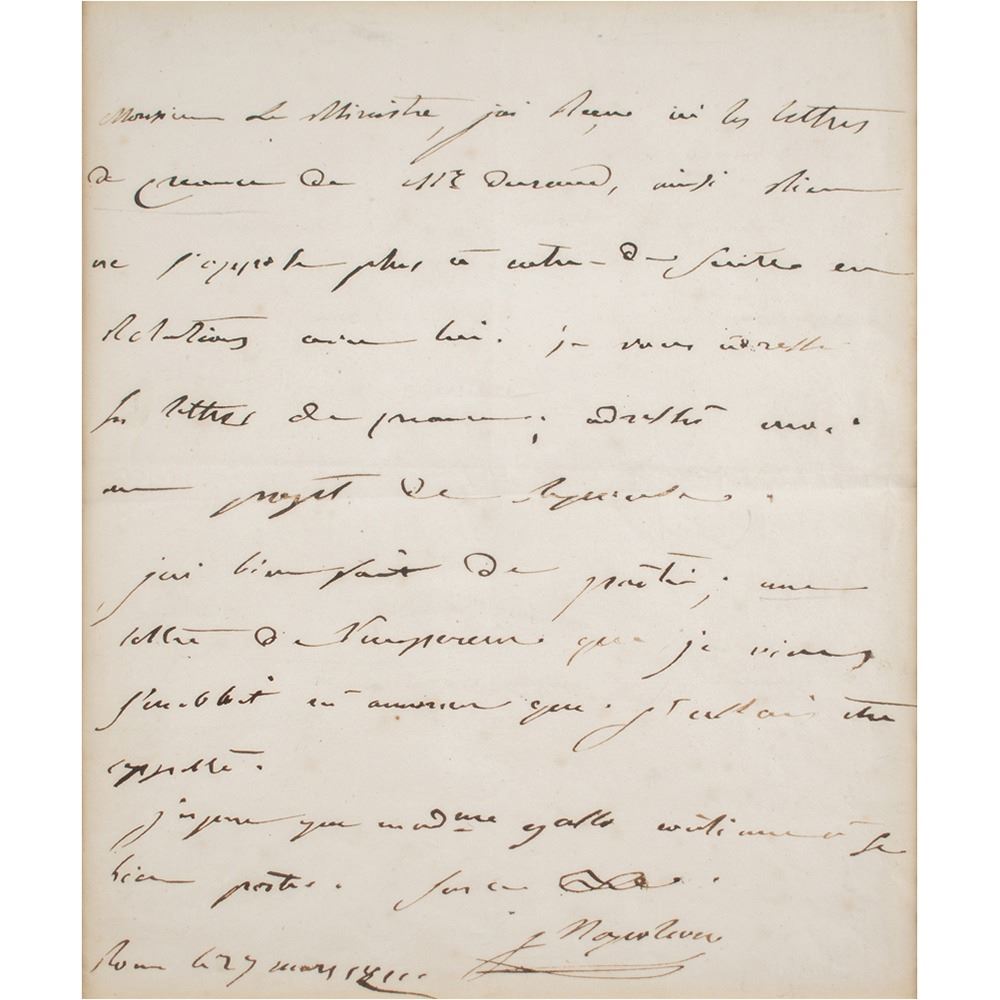 Monsieur Le Ministre, j'ai Reçu ici les lettres
de creance de Mr Durand, ainsi Rien
ne s'oppose plus à entrer de suite en
Relations avec lui. je vous adresse
ses lettres de creance; adressés moi
un projet de Reponse.
j'ai bien fait de partir; une
lettre de l'empereur que je viens
être
appellé.
j'espere que madme gallo continue à se
bien porter. sur ce
J Napoleon
Rome le 27 mars